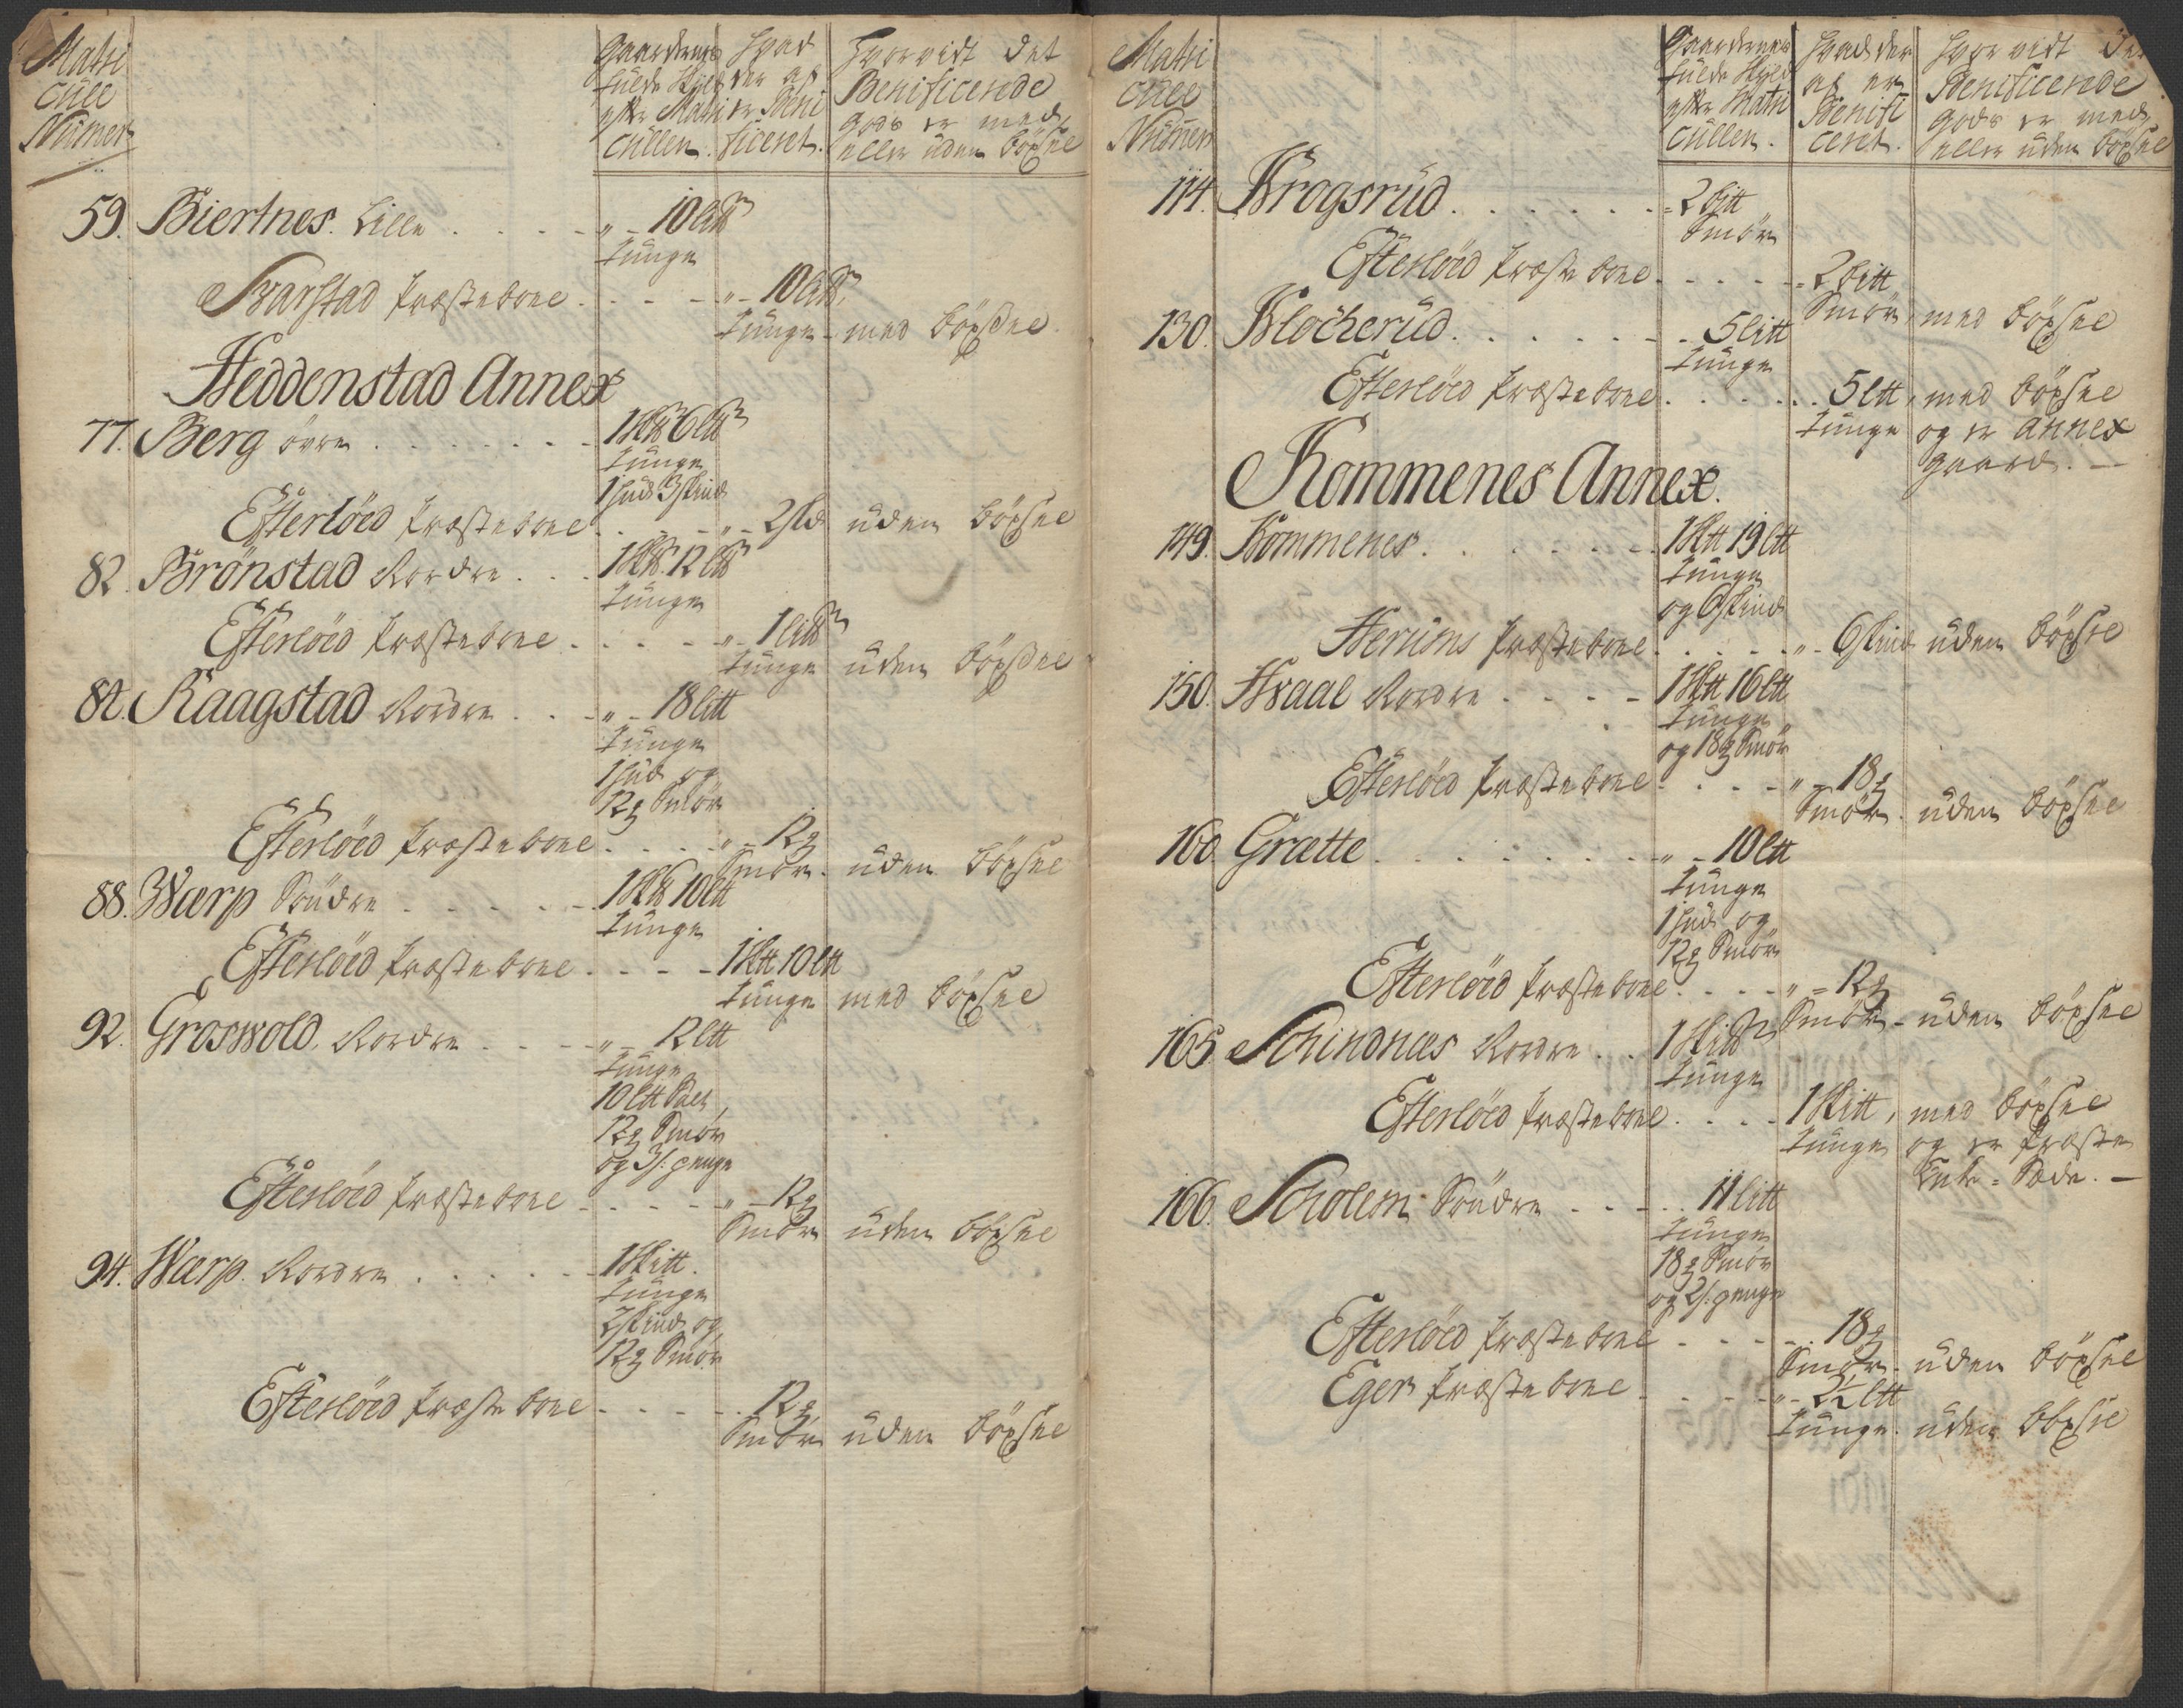 Matri
cull
Numer
Gaardenes
fulde Skyld
efter Matri
cullen.
Hvad
der af
er Beni
ficeret.
Hvorvidt det
Benificerede
gods er med
eller uden böxsel
59. Biertnes. Lille . . . . „ - 10 Lb
tunge
Svarstad Præsteboel . . . „ - 10 Lb
tunge - med böxsel
Heddenstad Annex
77. Berg övre . . . . . . . 1 Skb 6 Lb
tunge
1 hud 3 skind
Efterlöed Præsteboel . . . . „ - 2 skd uden böxsel
82. Brönstad Nordre . . . 1 Skb. 12 Lb
tunge
Efterlöed Præsteboel . . . . „ - 1 Lb
tunge uden böxsel
84. Raagstad Nordre . . „ - 18 Litt
tunge
1 hud og
12 ʒ Smör
Efterlöed Præsteboel . . . . „ - 12 ʒ
Smör. uden böxsel
88. Wærp Söndre . . . . . 1 Skb 10 Ltt
tunge
Efterlöed Præsteboel . . . . 1 Sktt 10 Ltt
tunge med böxsel
92. Groswold. Nordre . . . „ - 12 Ltt
tunge
10 Ltt Salt
12 ʒ Smör
og 3 s: penge
Efterlöed Præsteboel . . . . „ - 12 ʒ
Smör uden böxsel
94. Wærp. Nordre . . . . . 1 Skitt.
tunge
2 skind og
12 ʒ Smör
Efterlöed Præsteboel . . . . . 12 ʒ
Smör uden böxsel
Matri
cull
Numer
Gaardenes
fulde Skyld
efter Matri
cullen.
Hvad der
af er
Benifi
ceret.
Hvorvidt det
Benificerede
gods er med
eller uden böxsel
114. Krogsrud . . . . . . . 2 bitt
Smör
Efterlöed Præsteboel . . . . . 2 bitt
Smör, med böxsel
130. Klocherud . . . . . . . 5 Litt
tunge
Efterlöed Præsteboel . . . . . 5 Ltt, med böxsel
tunge og er Annex
gaard. —
Kommenes Annex.
149. Kommenes . . . . . . 1 Sktt 19 Ltt
tunge
og 6 skind
Nerums Præsteboel . . . . „ - 6 skind uden böxsel
150. Hvaal Nordre . . . . 1 Sktt 16 Ltt
tunge
og 18 ʒ Smör
Efterlöed Præsteboel . . . . „ - 18 ʒ
Smör. uden böxsel
160. Grætte . . . . . . . . „ - 10 Ltt
tunge
1 hud og
12 ʒ Smör
Efterlöed Præsteboel . . . . „ - 12 ʒ
Smör - uden böxsel
165. Schindnæs Nordre . . 1 Skitt
tunge
Efterlöed Præsteboel . . . . 1 Skitt, med böxsel
tunge og er Præste
Enke - Sæde. —
166. Scholem Söndre . . . . 11 Litt
tunge
18 ʒ Smör
og 2 s: penge
Efterlöed Præsteboel . . . . . 18 ʒ
Smör - uden böxsel
Eger Præsteboel . . . . . „ - 2½ Ltt
tunge. uden böxsel